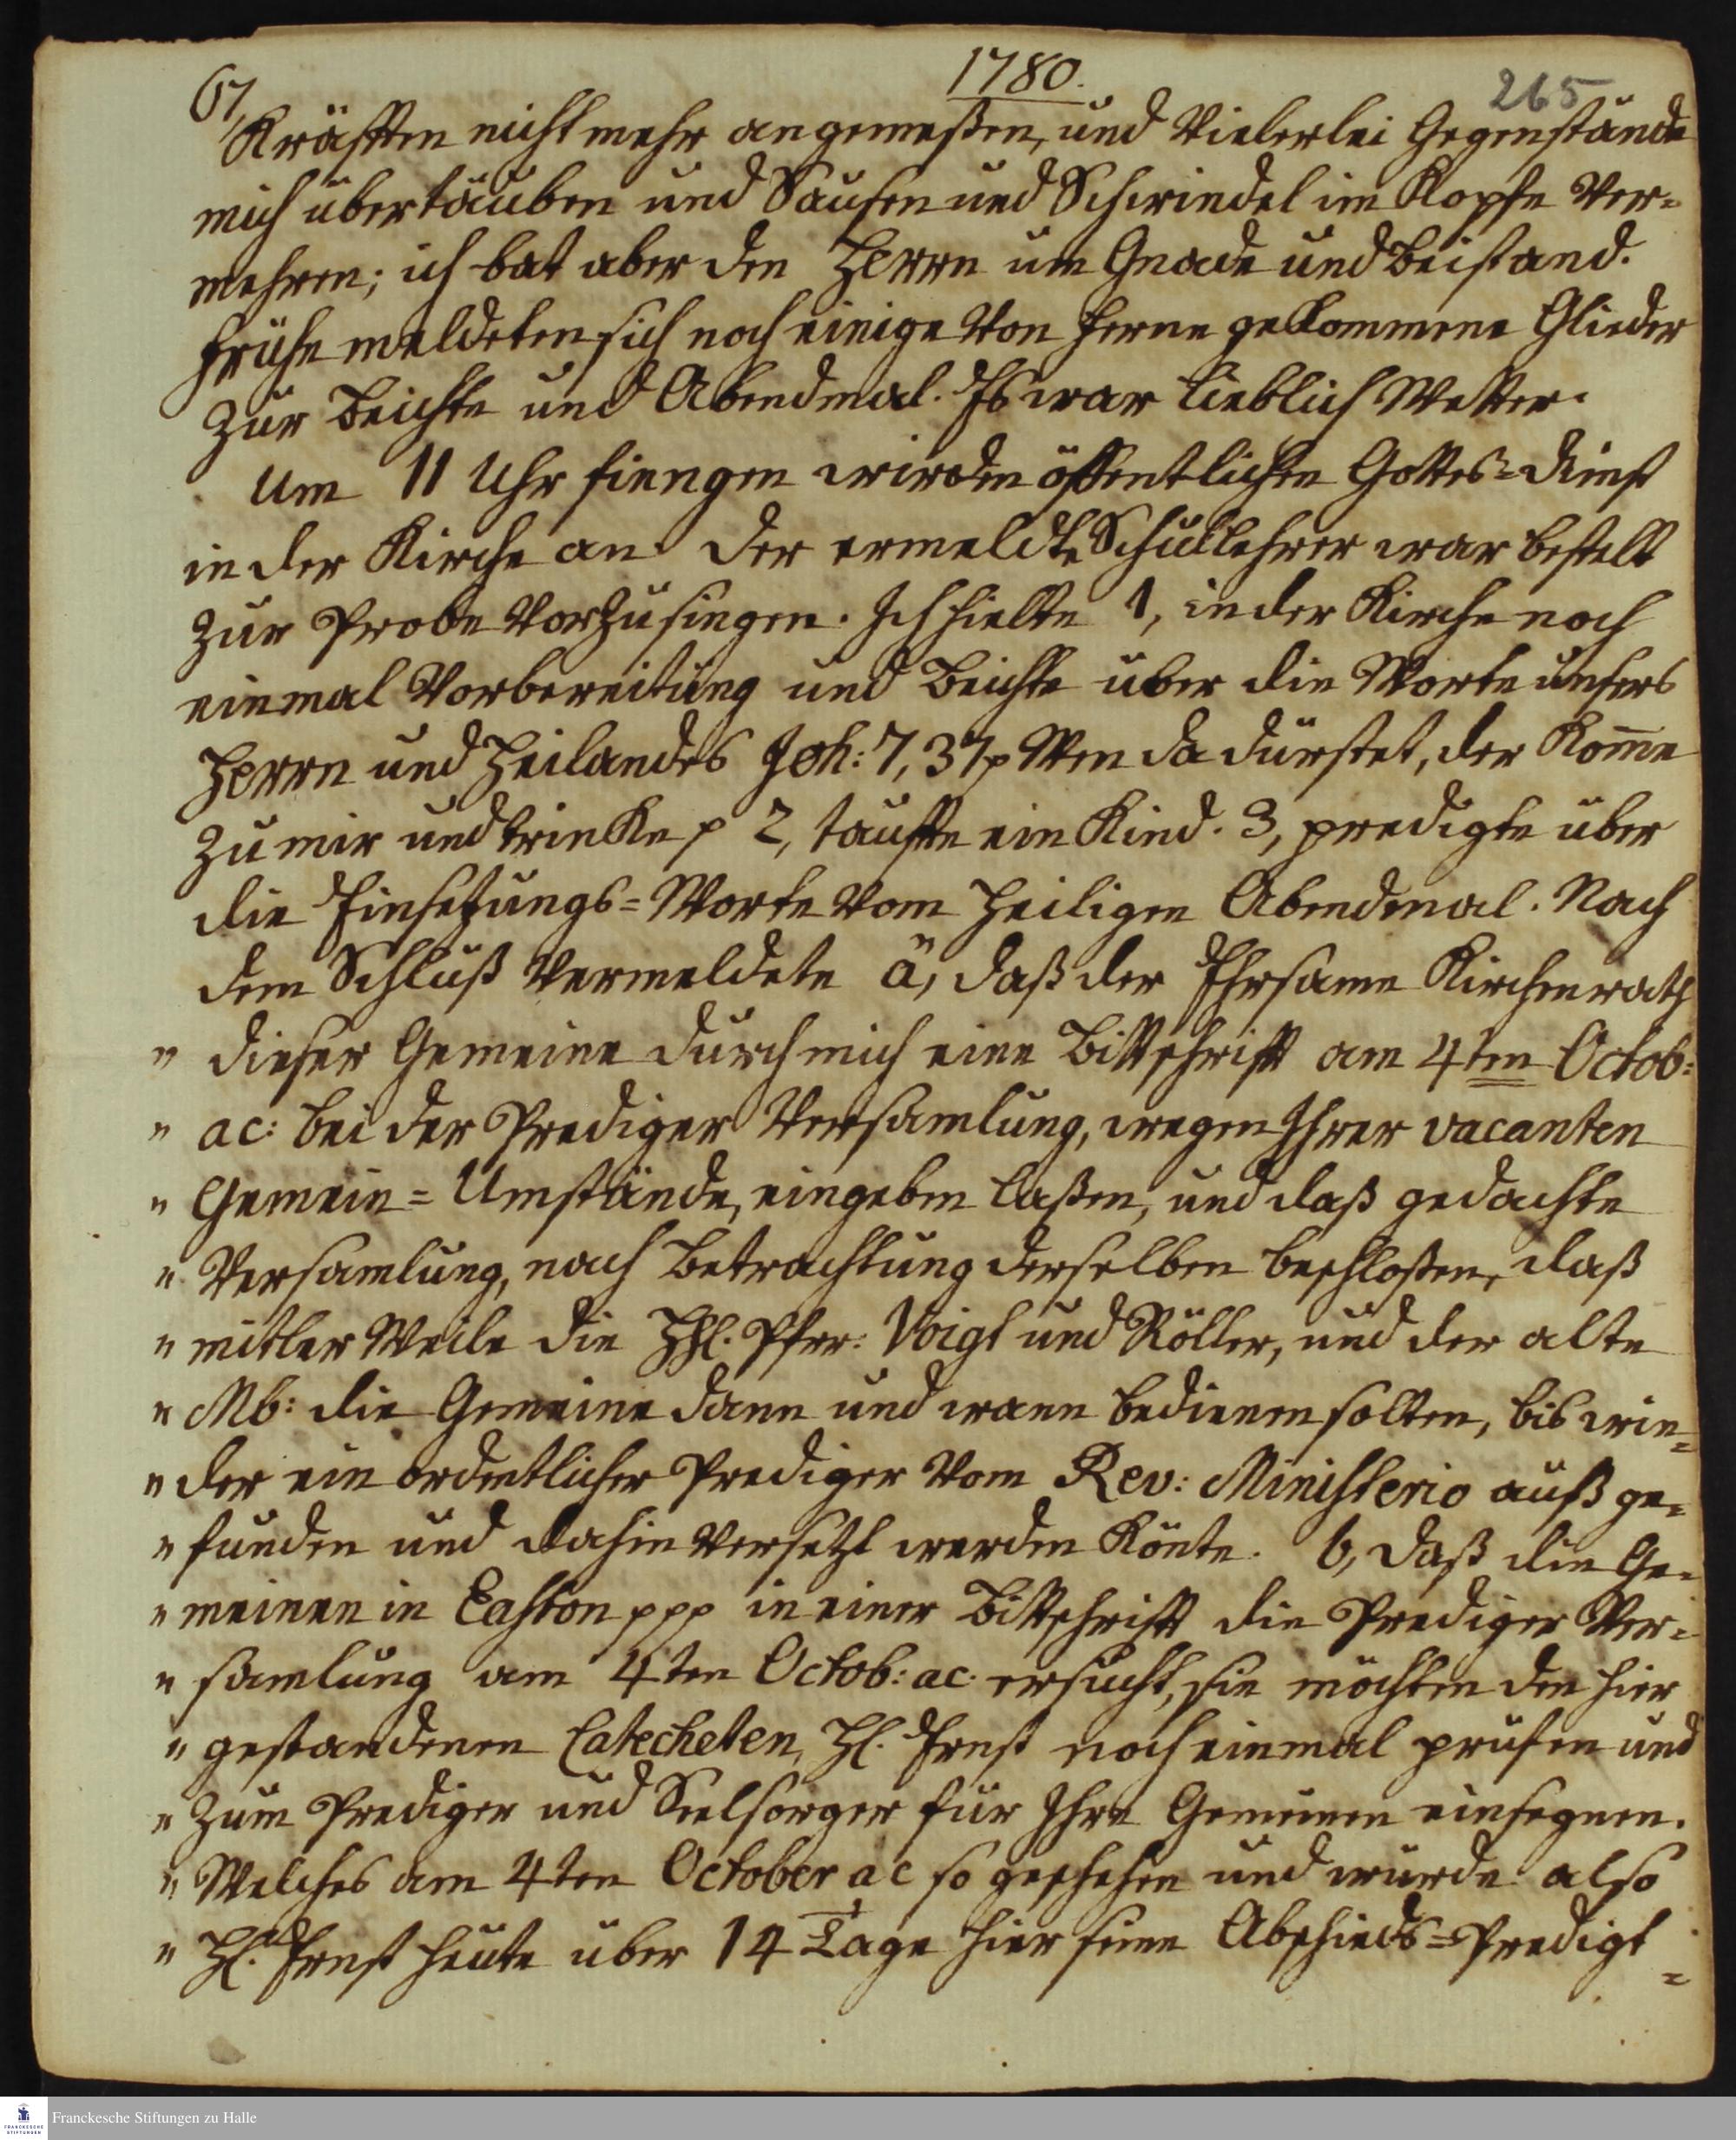 67,
1780.
265
Kräfften nicht mehr angemeßen, und Vielerlei Gegenstände
mich übertäuben und Sausen und Schwindel im Kopfe Ver=
mehren; ich bat aber den HErrn um Gnade und Beistand.
frühe meldeten sich noch einige Von ferne gekommene Glieder
zur Beichte und Abendmal. Es war lieblich Wetter.
Um 11 Uhr fiengen wir den öffentlichen Gottes=dienst
in der Kirche an. der ermeldte Schullehrer war bestellt
zur Probe Vorzusingen. Ich hielte 1, in der Kirche noch
einmal Vorbereitung und Beichte über die Worte unsers
HErrn und Heilandes Joh: 7, 37 p Wen da dürstet, der kom̄e
zu mir und trinke p 2, tauffte ein Kind. 3, predigte über
die Einsetzungs=Worte Vom heiligen Abendmal. Nach
dem Schluß Vermeldete ä, daß der Ehrsame Kirchenrath
" dieser Gemeine durch mich eine Bittschrifft am 4ten Octob:
" ac: bei der Prediger Versamlung, wegen Ihrer vacanten
" Gemein=Umstände, eingeben laßen, und daß gedachte
" Versamlung, nach Betrachtung derselben beschloßen, daß
" mitler Weile die HhL. Pfrr: Voigt und Röller, und der alte
" Mb: die Gemeine dann und wann bedienen solten, bis wie=
" der ein ordentlicher Prediger Vom Rev: Ministerio auß ge=
" funden und dahin Versetzt werden könte. b, daß die Ge=
" meinen in Easton ppp in einer Bittschrifft die Prediger Ver=
" samlung am 4ten Octob: ac: ersucht, sie möchten den hier
" gestandenen Catecheten, HL. Ernst noch einmal prüfen und
" zum Prediger und Seelsorger für Ihre Gemeinen einsegnen.
" Welches am 4ten October ac so geschehen und würde also
" HL. Ernst heute über 14 Tage hier seine Abschieds=Predigt
=
Franckesche Stiftungen zu Halle
FRANCKESCHE
STIFTUNGEN